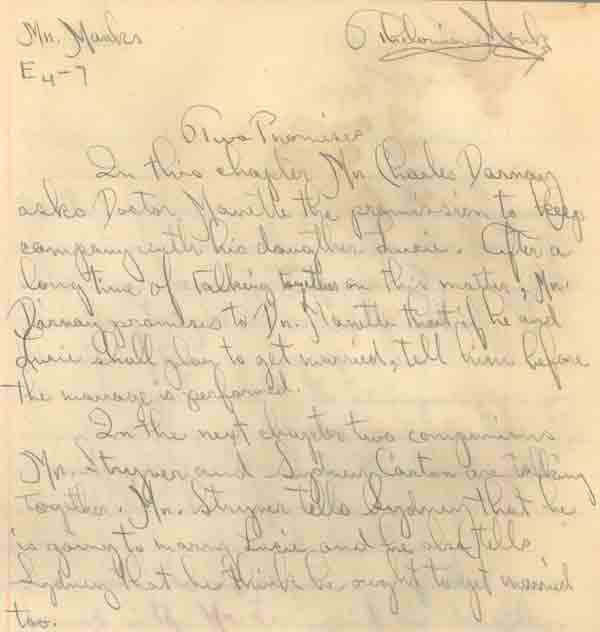 Mr. Marks
Thelonious Monk
E4-7
Two Promises
In this chapter Mr. Charles Darnay
asks Doctor Manette the promission to keep
company with his daughter Lucie. After a
long time of talking together on this matter, Mr.
Darnay promises to Dr. Manette that if he and
Lucie shall plan to get married, tell him before
the marriage is performed.
In the next chapter two companions
Mr. Stryver and Sydney Carton are talking
together. Mr. Stryver tells Sydney that he
is going to marry Lucie and he also tells
Sydney that he thinks he ought to get married
too.